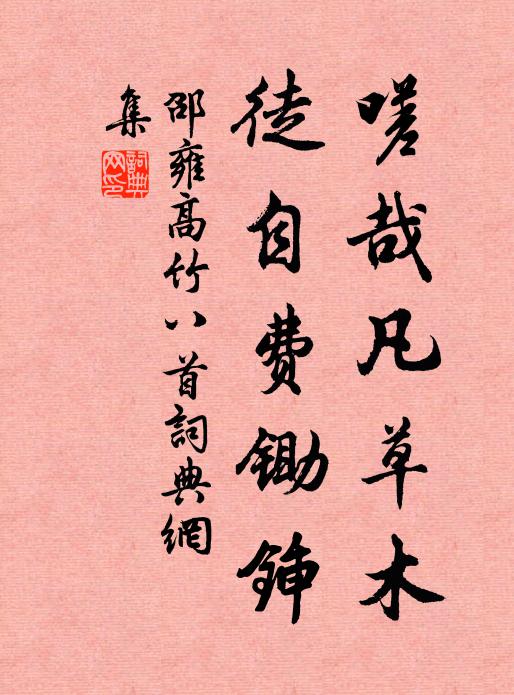 嗟哉凡草木
徒自费锄鍤
邵雍高竹八首詞典網
集
詞典
网印